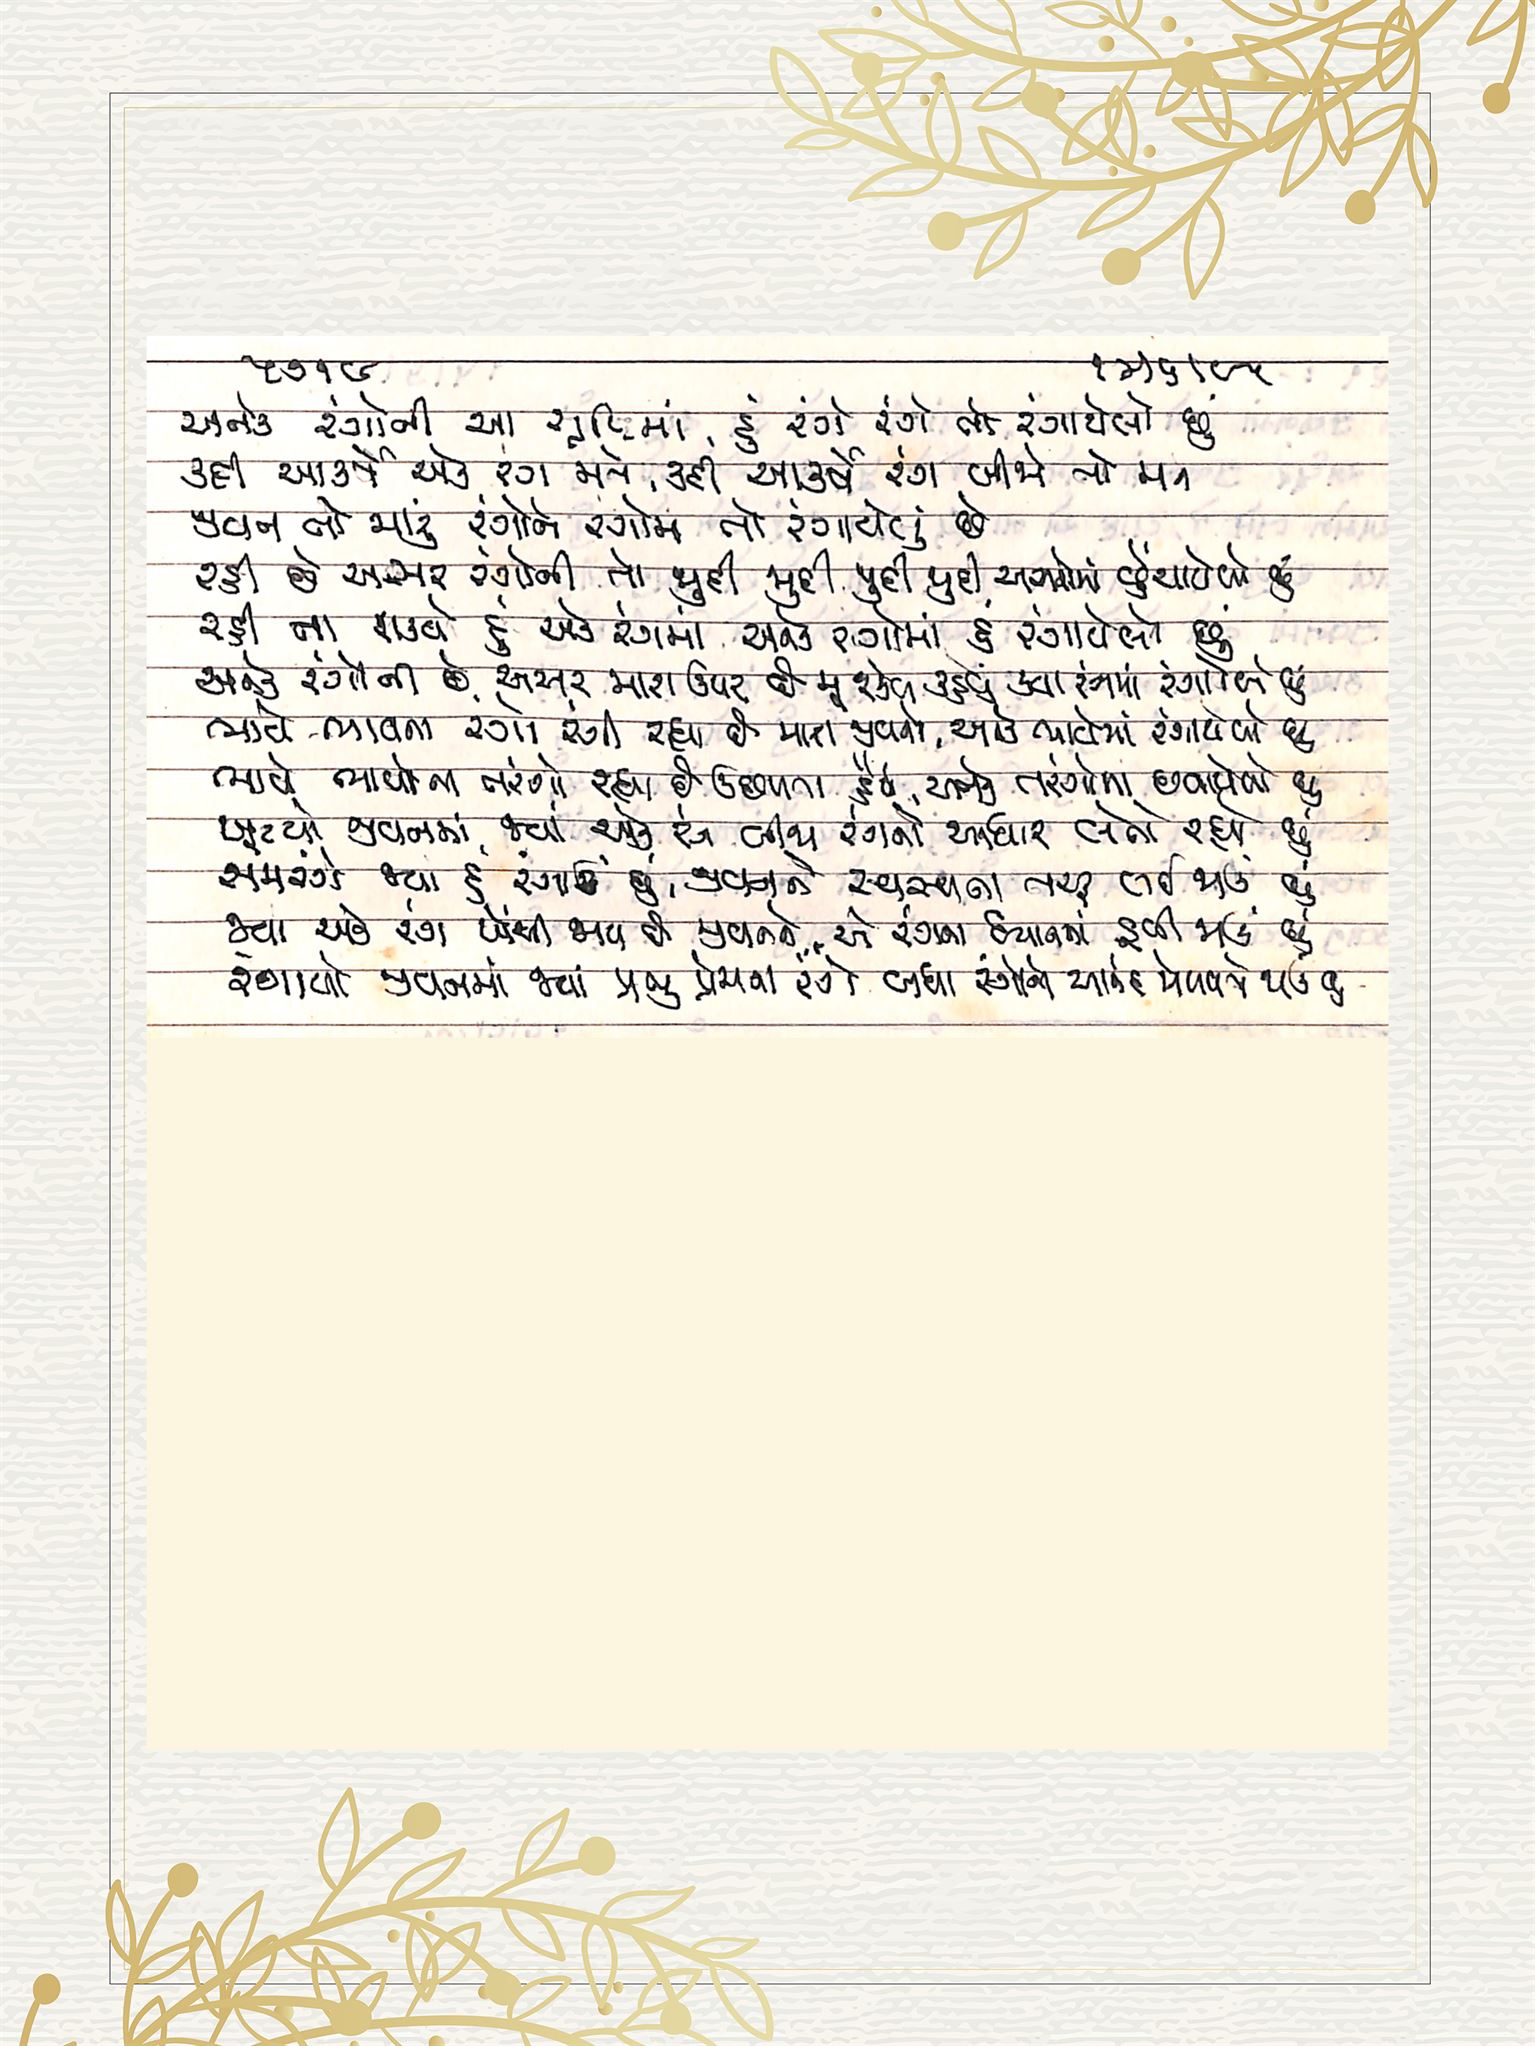 ૫૭૧૮
અનેક રંગોની આ સૃષ્ટિમાં, હું રંગે રંગે તો રંગાયેલો છું
કદી આકર્ષે એક રંગ મને, કદી આકર્ષે રંગ બીજે તો મન
જીવન તો મારું રંગોને રંગોમાં તો રંગાયેલું છે
રહી છે અસર રંગોની તો જુદી જુદી, જુદી જુદી, અસરોમાં ખેંચાયેલો છું
રહી ના શકયે હું એક રંગમાં, અનેક રંગોમાં હું રંગાયેલો છું
અનેક રંગોની છે અસર મારા ઉપર છે કહેવું કયા રંગમાં રંગાયેલો છું
ભાવે ભાવના રંગો રંગી રહ્યા છે મારા જીવનને, અનેક ભાવોમાં રંગાયેલો છું
ભાવે ભાવોના તરંગો રહ્યા છે ઉછળતા હૈયે, અનેક તરંગોમાં છવાયેલો છું
ખૂટયો જીવનમાં, જ્યાં એક રંગ બીજા રંગનો આધાર લેતો રહ્યો છું
સમરંગે જ્યાં હું રંગાઉં છું, જીવનને સ્વસ્થતા તરફ લઈ જાઉં છું
જ્યાં એક રંગ ખેંચી જાય છે જીવનને, એ રંગના ધ્યાનમાં ડૂબી જાઉં છું
રંગાયો જીવનમાં જ્યાં પ્રભુ પ્રેમના રંગે બધા રંગોનો આનંદ મેળવતો જાઉં છું